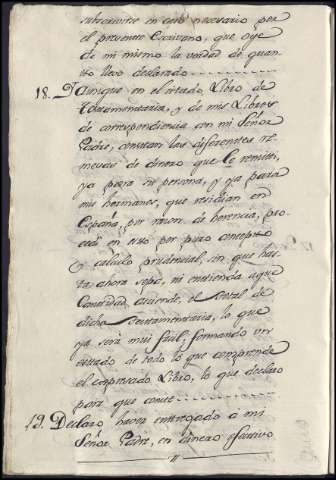 substituirse en caso necesario por
el presente Escribano, que oye
de mi mismo la verdad de quan-
to llevo declarado
18. Y aunque en el citado Libro de
Testamentaria, y de mis Libros
de correspondencia con mi Señor
Padre, constan las diferentes re-
mesas de dinero que le remiti,
ya para su persona, y ya para
mis hermanos, que residian en
España, por razon de herencia, pro-
cedi en esto por puro concepto
y calculo prudencial, sin que has-
ta ahora sepa, ni entienda a que
Cantidad asciende, el total de
dicha Testamentaria, lo que
ya será mui facil, formando un
extracto de todo lo que comprende
el expresado Libro, lo que declaro
para que conste
19. Declaro haver entregado à mi
Señor Padre, en dinero efectivo